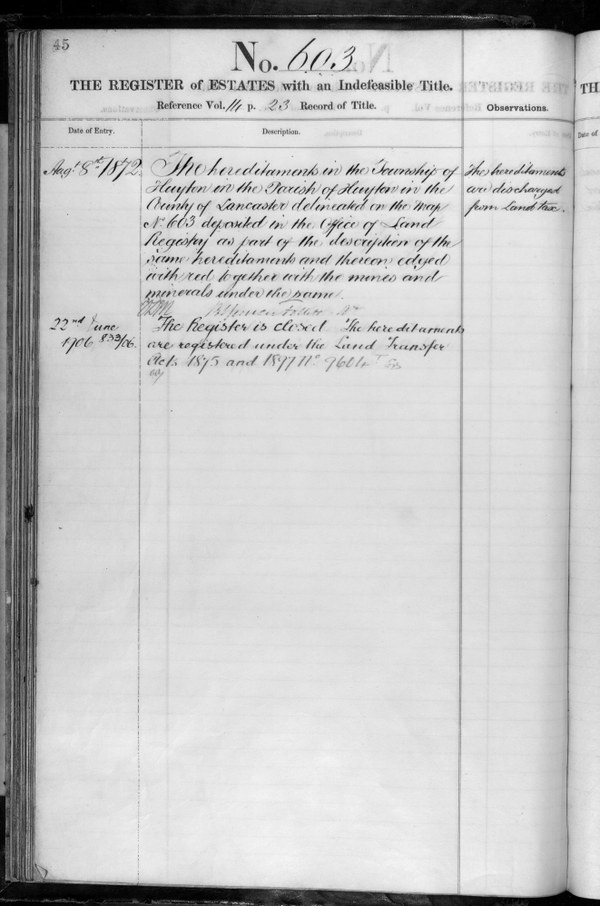 45
No. 603
THE REGISTER of ESTATES with an Indefeasible Title.
Reference Vol. 14 p. 23 Record of Title.
Observations.
Date of Entry.
Description.
Augt. 8th 1872.
The hereditaments in the Township of
Huyton in the Parish of Huyton in the
County of Lancaster delineated on the Map
No. 603 deposited in the Office of Land
Registry as part of the description of the
same hereditaments and thereon edged
with red together with the mines and
minerals under the same.
The hereditaments
are discharged
from Land Tax.
22nd June
1906
The Register is closed The hereditaments
are registered under the Land Transfer
Acts 1875 and 1897
TH
Date of